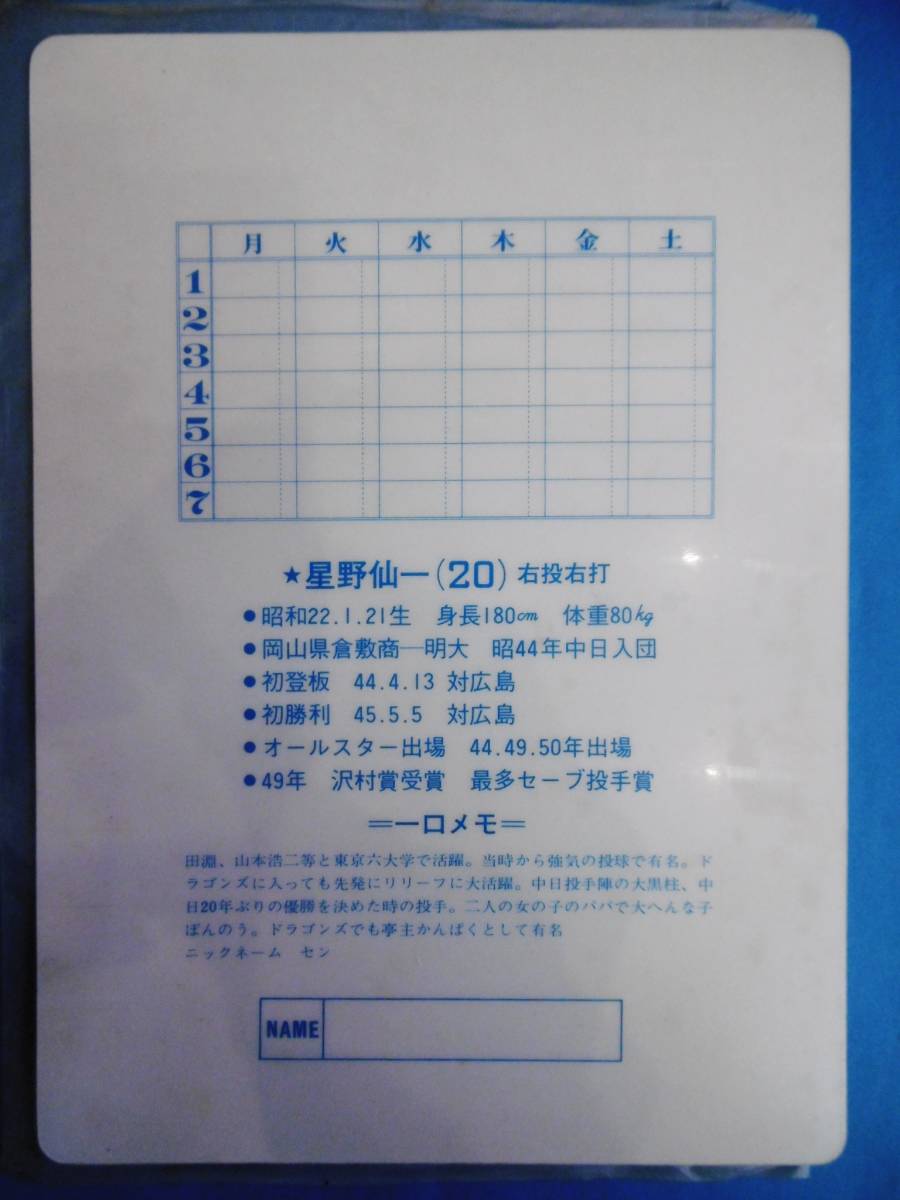 月 火 水 木 金 土
1
2
3
4
5
6
7
★星野仙一(20) 右投右打
●昭和22.1.21生 身長180cm 体重80kg
●岡山県倉敷商─明大 昭44年中日入団
●初登板 44.4.13 対広島
●初勝利 45.5.5 対広島
●オールスター出場 44.49.50年出場
●49年 沢村賞受賞 最多セーブ投手賞
＝一口メモ＝
田淵、山本浩二等と東京六大学で活躍。当時から強気の投球で有名。ド
ラゴンズに入っても先発にリリーフに大活躍。中日投手陣の大黒柱、中
日20年ぶりの優勝を決めた時の投手。二人の女の子のパパで大へんな子
ぼんのう。ドラゴンズでも亭主かんぱくとして有名
ニックネーム セン
NAME